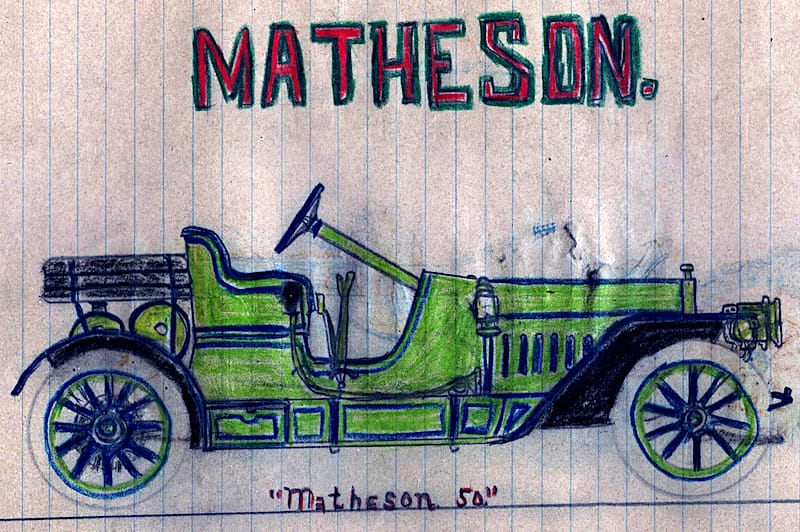 MATHESON.
"Matheson. 50."